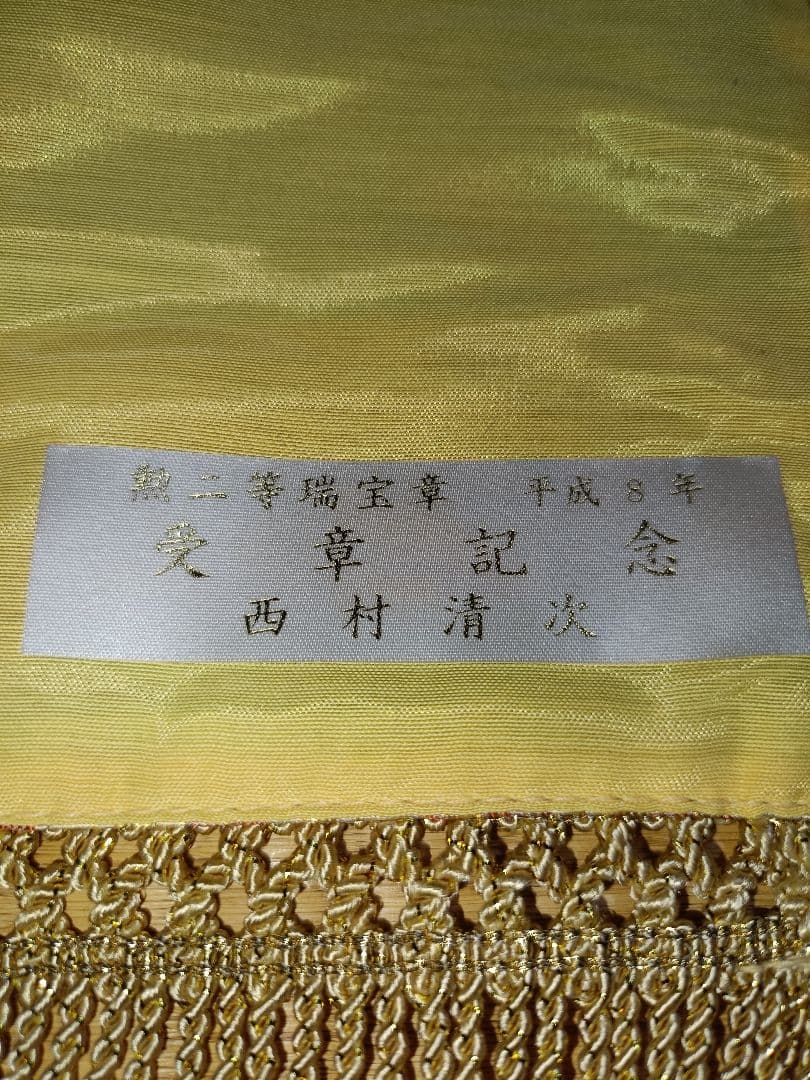 勲二等瑞宝章 平成8年
受章記念
西村清次